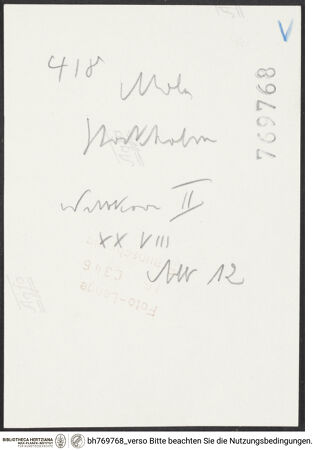 418
Mola
Stockholm
II
XX VIII
Abb 12
769768
Foto-Lange
BIBLIOTHECA HERTZIANA
MAX-PLANCK-INSTITUT
FÜR KUNSTGESCHICHTE
bh769768_verso Bitte beachten Sie die Nutzungsbedingungen.